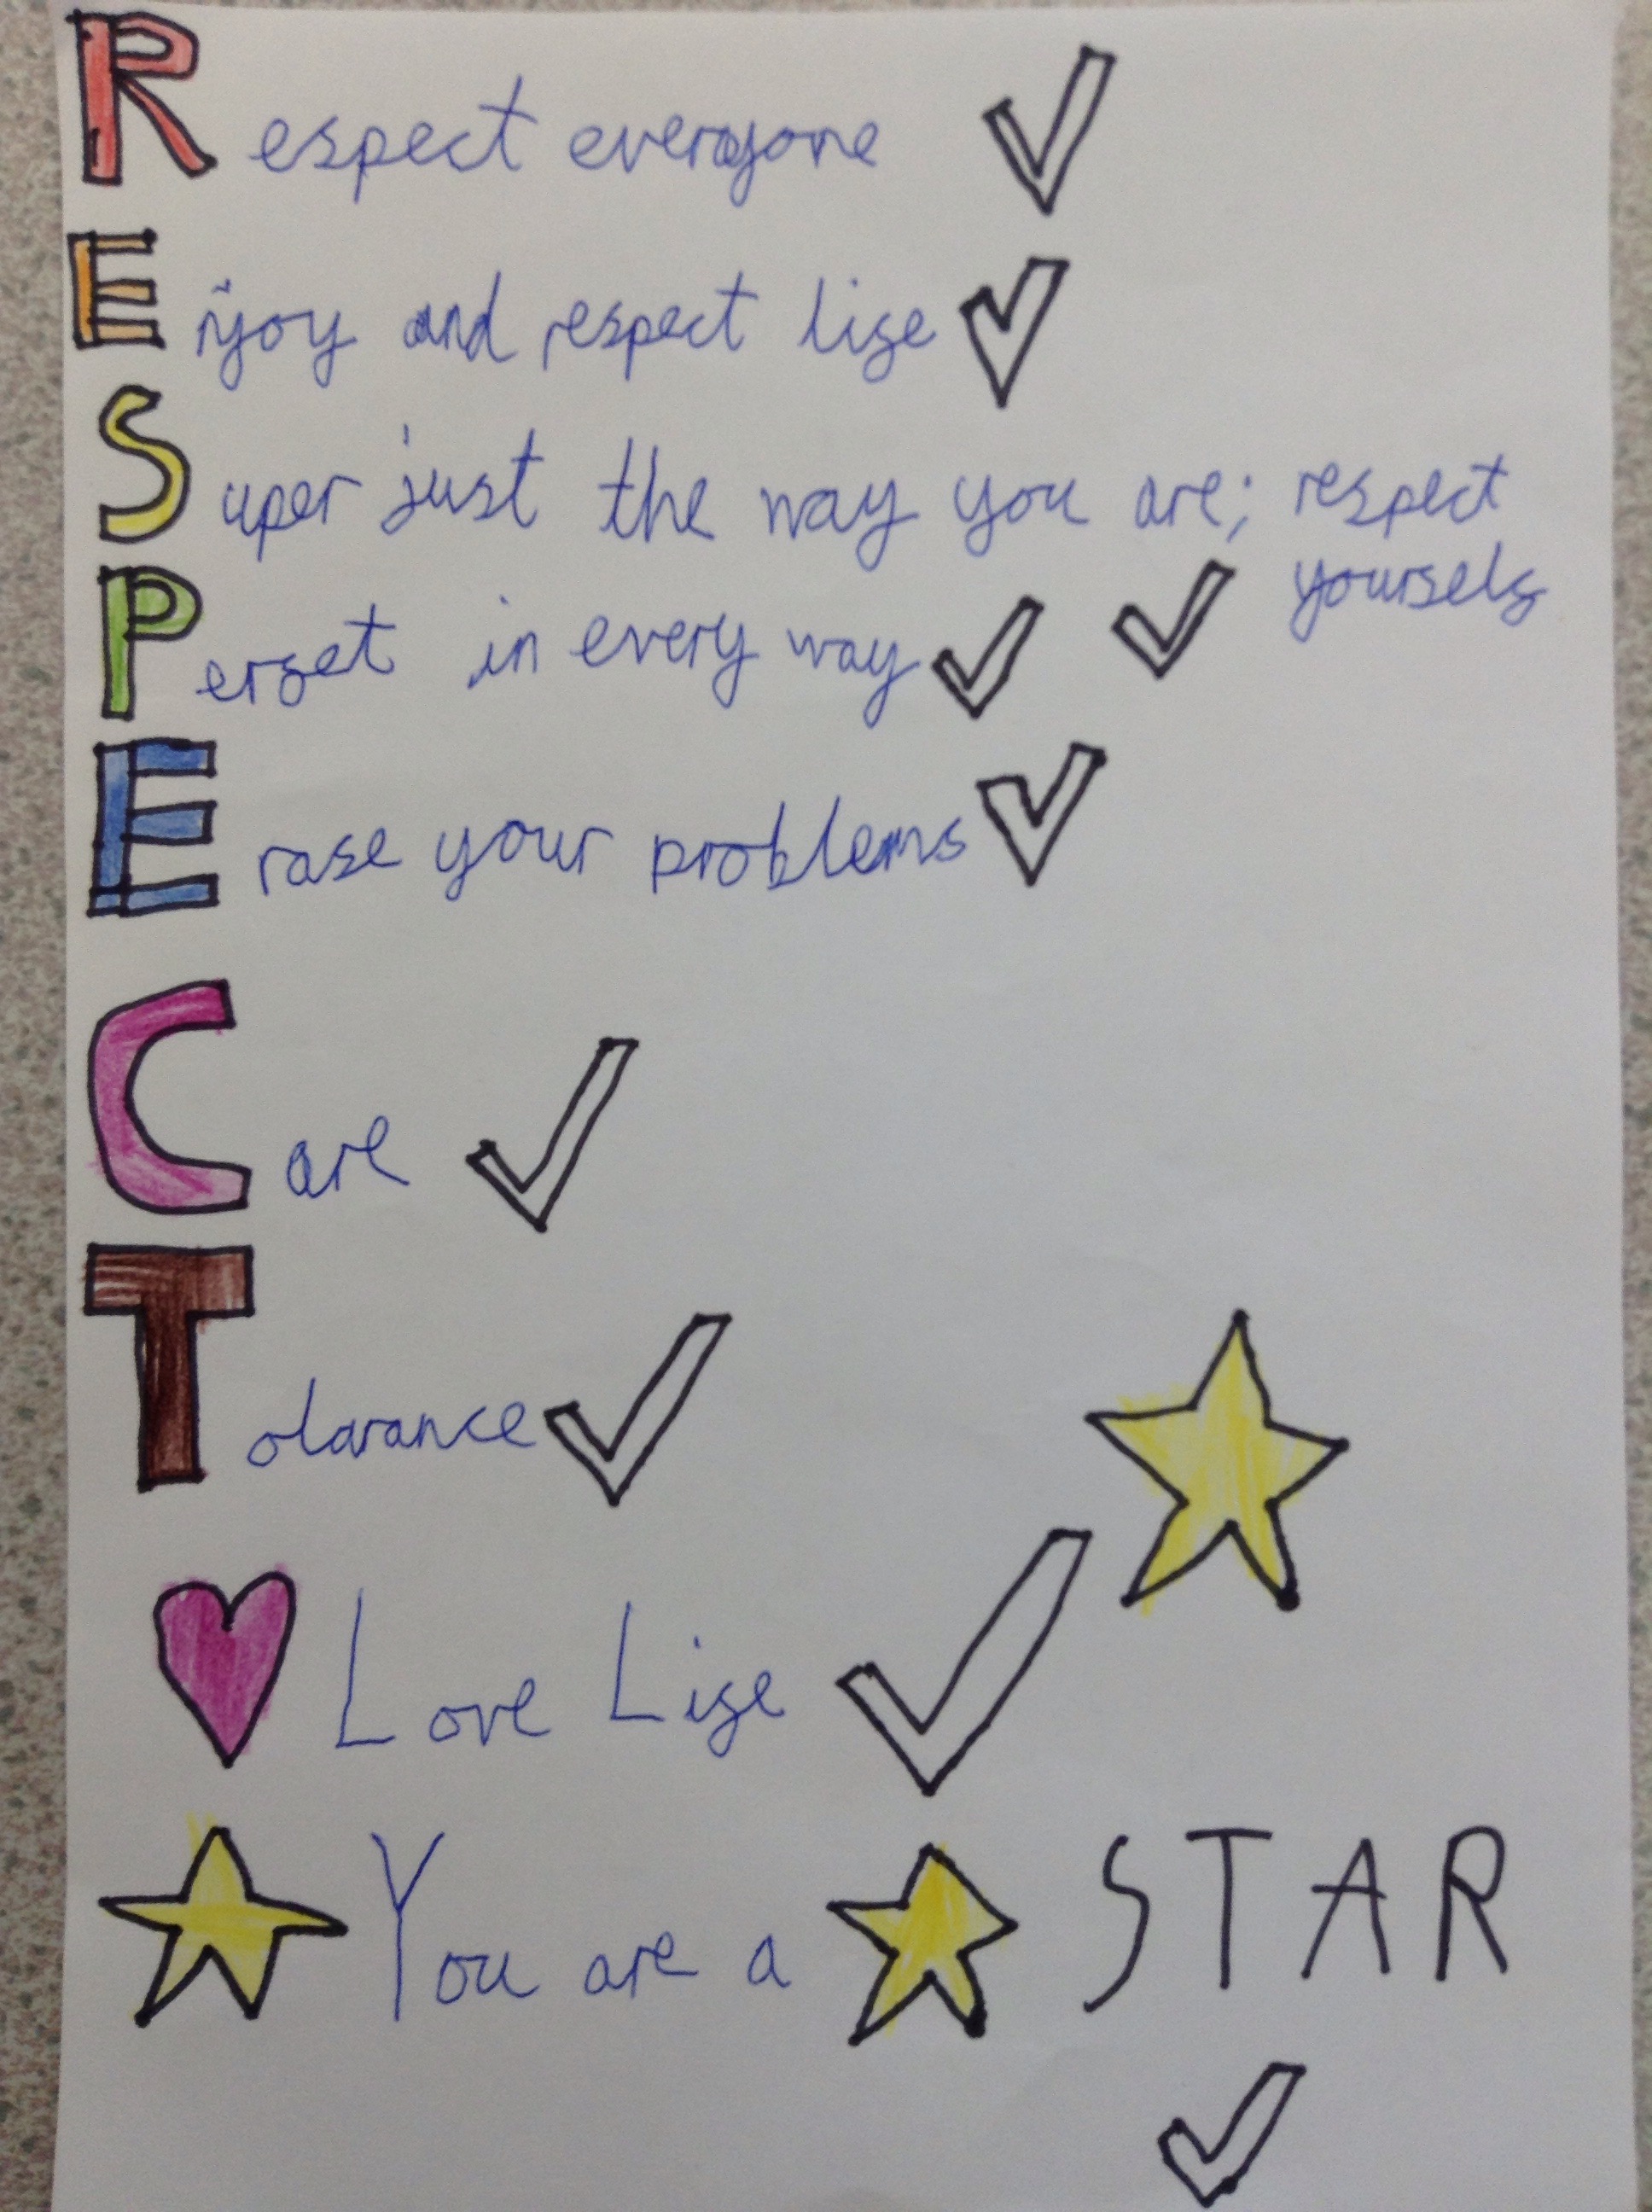 Respect everyone
Enjoy and respect life
Super just the way you are; respect
yourself
Perfet in every way
Erase your problems
Care
Tolarance
Love Life
You are a STAR